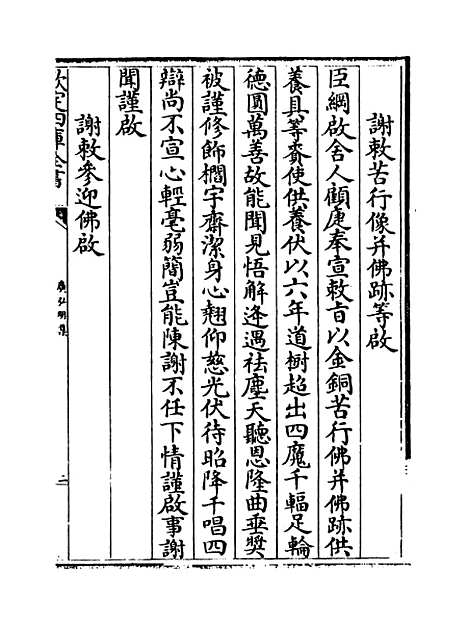 謝敕苦行像并佛跡等啟
臣綱啟舍人顧㢘奉宣敕旨以金銅苦行佛并佛跡供
養具等賚使供養伏以六年道樹超出四魔千輻足輪
德圓萬善故能聞見悟解逢遇祛塵天聽恩隆曲垂奬
被謹修飾櫩宇齋潔身心翹仰慈光伏待昭降千唱四
辯尚不宣心輕毫弱簡豈能陳謝不任下情謹啟事謝
聞謹啟
謝敕參迎佛啟
欽定四庫全書
廣弘明集